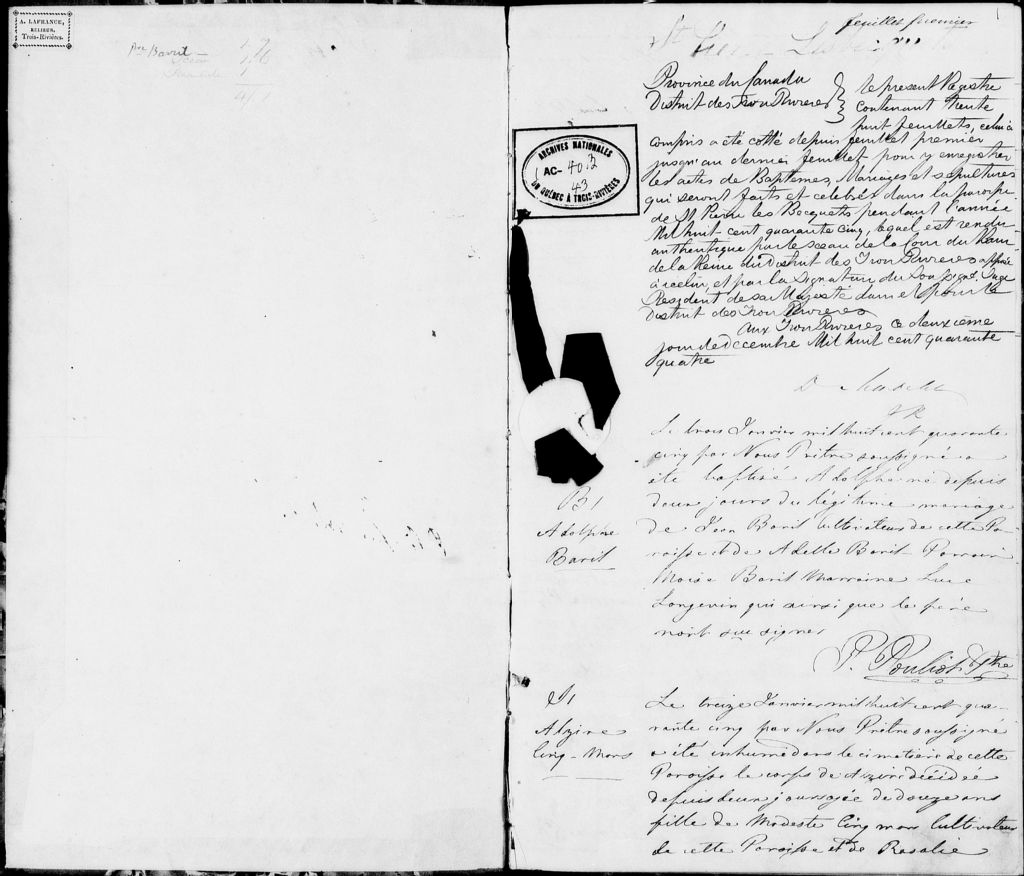 A. LAFRANCE,
RELIEUR,
Trois-Rivières.
Pre Baril
feuillet premier
1
St
Province du Canada
District des Trois Rivieres
le present Registre
contenant trente
huit feuillets, celui ci
compris a été cotté depuis feuillet premier
jusqu'au dernier feuillet pour y enregistrer
les actes de Baptemes, Mariages et sepultures
qui seront faits et celebrés dans la paroisse
de St Pierre les Becquets pendant l'année
Mil huit cent quarante cinq, lequel est rendu
authentique par le sceau de la Cour du Banc
de la Reine du District des Trois Rivieres apposé
à icelui, et par la signature du Soussigné Juge
Resident de sa Majesté dans et pour le
District des Trois Rivieres
Aux Trois Rivieres ce deuxième
jour de Decembre Mil huit cent quarante
quatre
ARCHIVES NATIONALES
AC- 40.2
43
DU QUÉBEC À TROIS-RIVIÈRES
B1
Adolphe
Baril
Le trois Janvier mil huit cent quarante
cinq par Nous Prêtre soussigné a
été baptisé Adolphe né depuis
deux jours du légitime mariage
de Jean Baril cultivateur de cette Pa-
roisse et de Adelle Baril Parrain
Moïse Baril Marraine Luce
Longevin qui ainsi que le père
n'ont su signer
P. Pouliot Ptre
S1
Alzire
Cinq-Mars
Le treize Janvier mil huit cent qua-
rante cinq par Nous Prêtre soussigné
a été inhumé dans le cimetière de cette
Paroisse le corps de Alzire décédée
depuis deux jours agée de douze ans
fille de Modeste Cinq mars Cultivateur
de cette Paroisse et de Rosalie